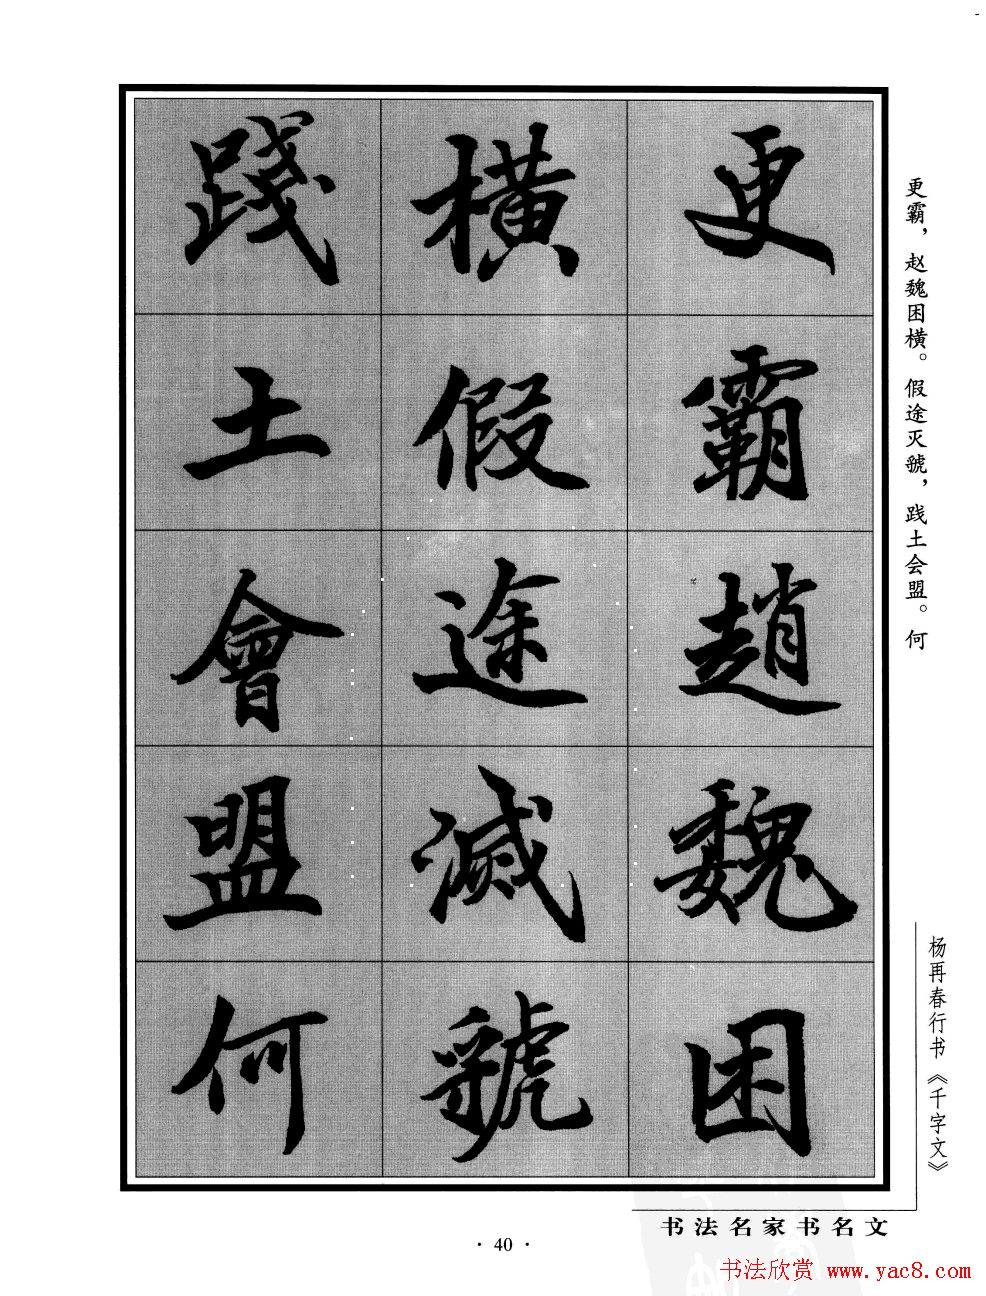 更霸趙魏困
橫假途滅虢
踐土會盟何
更霸，赵魏困横。假途灭虢，践土会盟。何
杨再春行书《千字文》
书法名家书名文
· 40 ·
书法欣赏 www.yac8.com